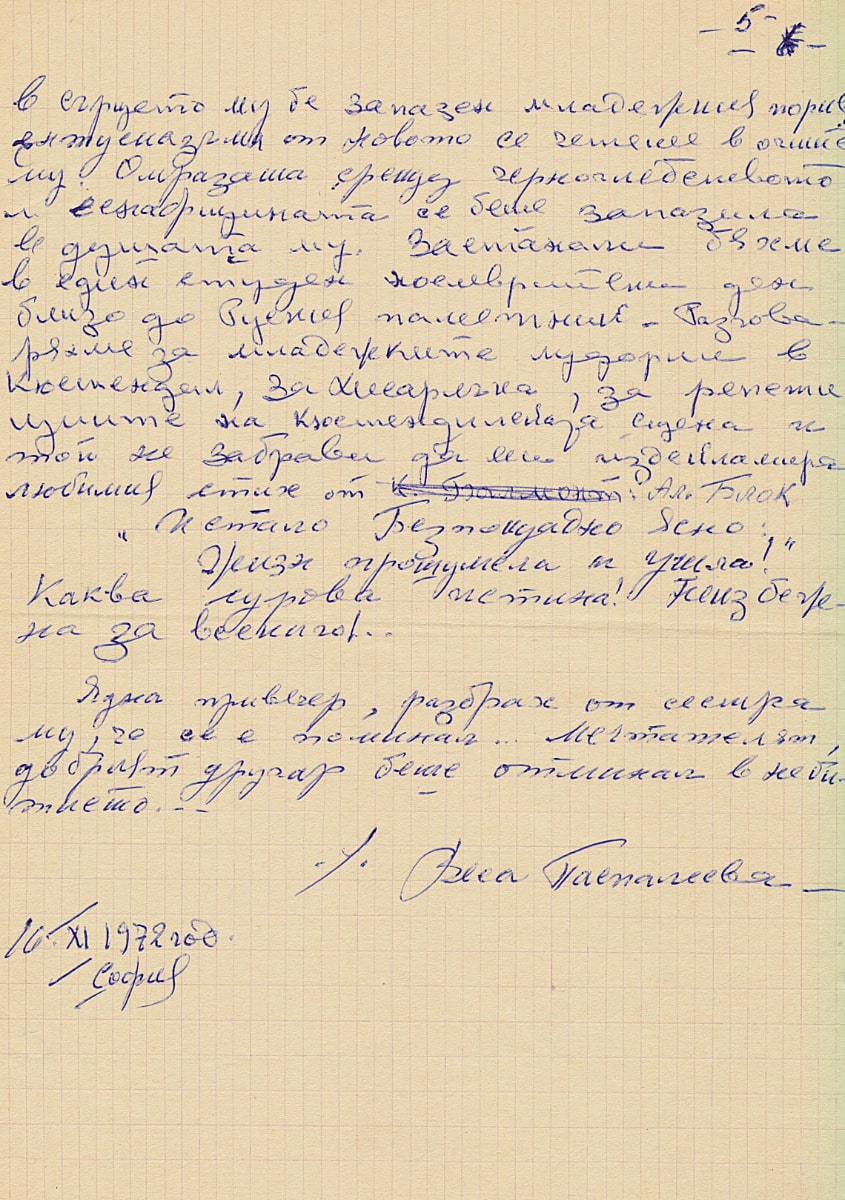 – 5 –
в сърцето му бе запазен младежкия порив
ентусиазъма от новото се четеше в очите
му. Омразата срещу
и еснафщината се беше запазила
в душата му. Застанали бяхме
в един студен ноемврийски ден
близо до Руския паметник – Разгова-
ряхме за младежките години в
Кюстендил, за Хисарлъка, за репети-
циите на Кюстендилската сцена и
той не забрави да ми издекламира
любимия стих от К. Балмонт: Ал. Блок
„И стало Безпощадно Ясно:
Жизн прошумела и ушла!“
Каква сурова истина! Неизбеж-
на за всекиго!..
Една привечер, разбрах от сестра
му, че се е поминал... Мечтателят,
добрият другар беше отминал в неби-
тието...
Яна Паспалеева –
16. XI 1972 год.
София